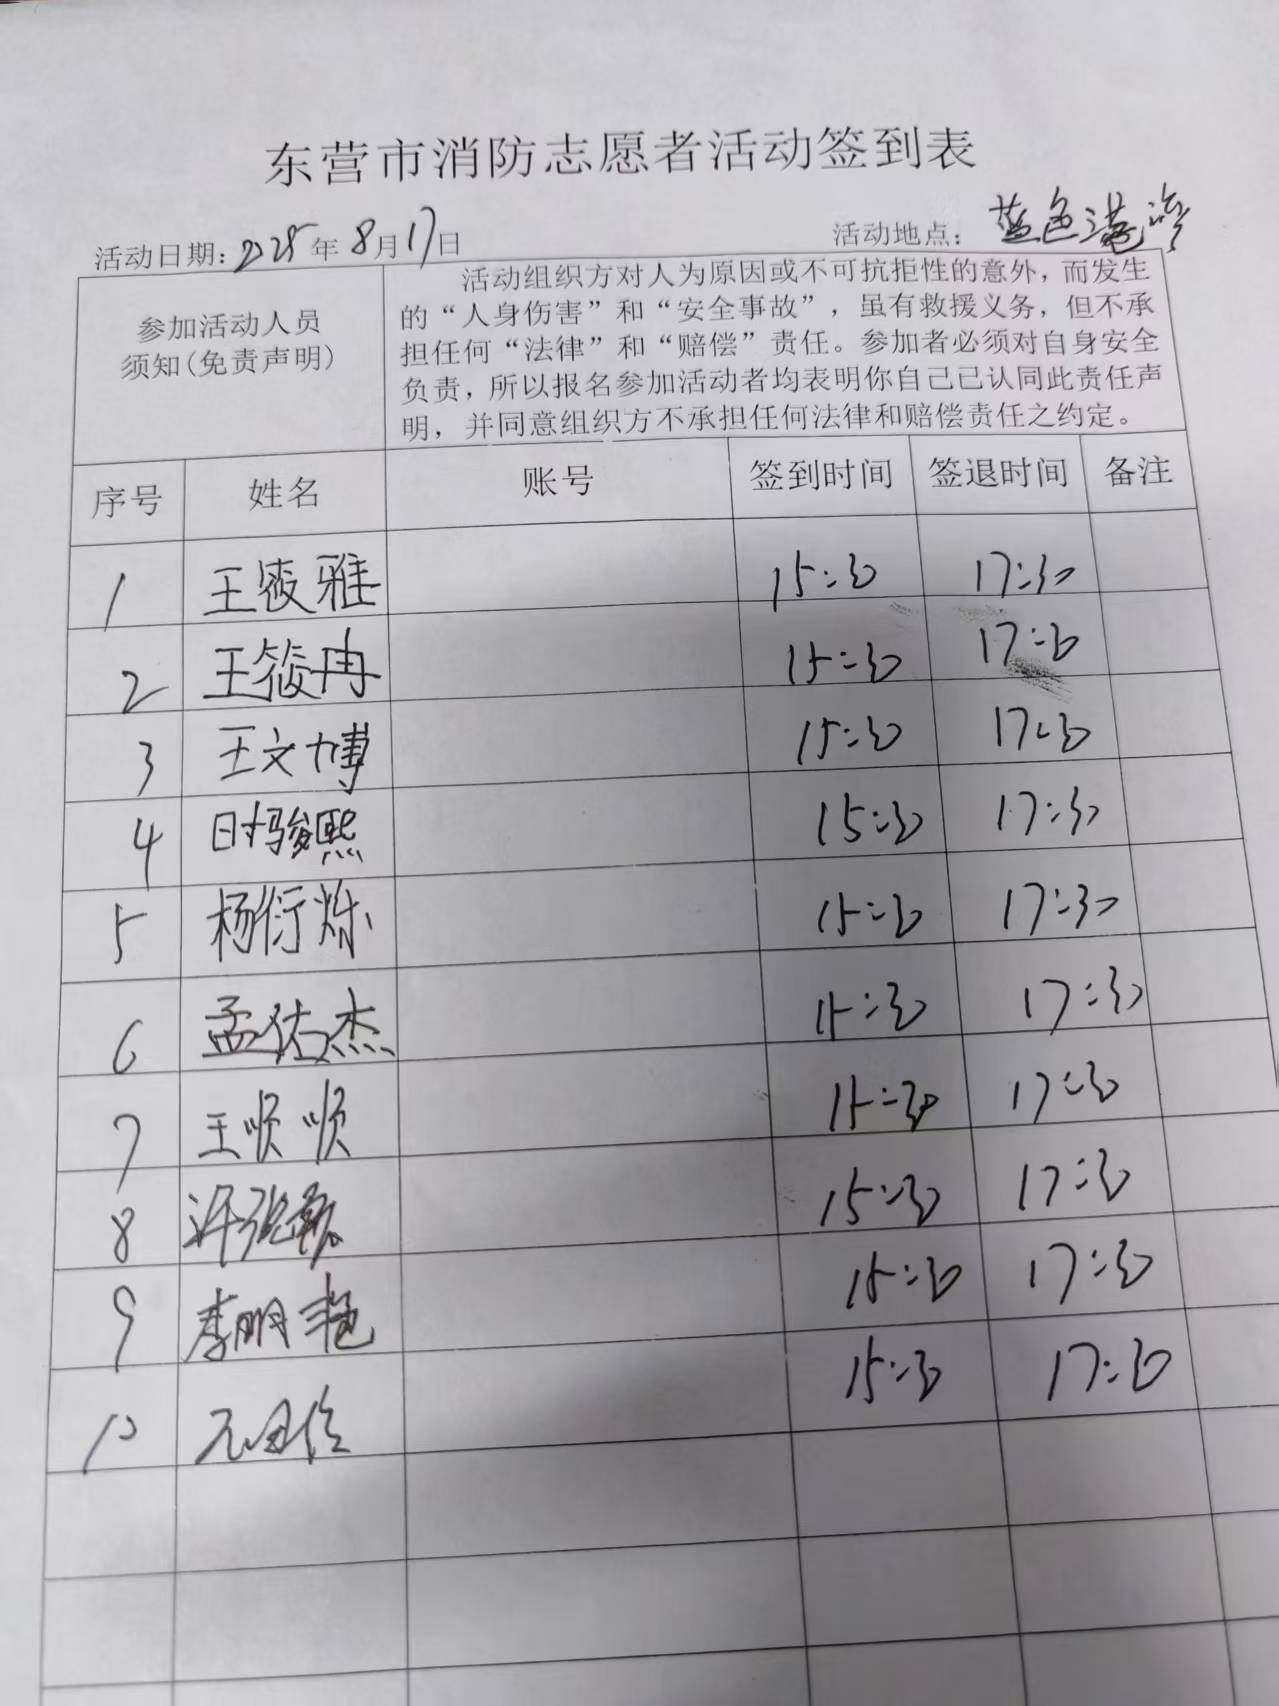 东营市消防志愿者活动签到表
活动日期：2025年8月17日 活动地点：蓝色港湾
参加活动人员
须知(免责声明)
活动组织方对人为原因或不可抗拒性的意外，而发生
的“人身伤害”和“安全事故”，虽有救援义务，但不承
担任何“法律”和“赔偿”责任。参加者必须对自身安全
负责，所以报名参加活动者均表明你自己已认同此责任声
明，并同意组织方不承担任何法律和赔偿责任之约定。
序号 姓名 账号 签到时间 签退时间 备注
1 王筱雅 15:30 17:30
2 王筱冉 15:30 17:30
3 王文博 15:30 17:30
4 时骏熙 15:30 17:30
5 杨衍烁 15:30 17:30
6 孟佑杰 15:30 17:30
7 王顺顺 15:30 17:30
8 许 15:30 17:30
9 李明艳 15:30 17:30
10 15:30 17:30